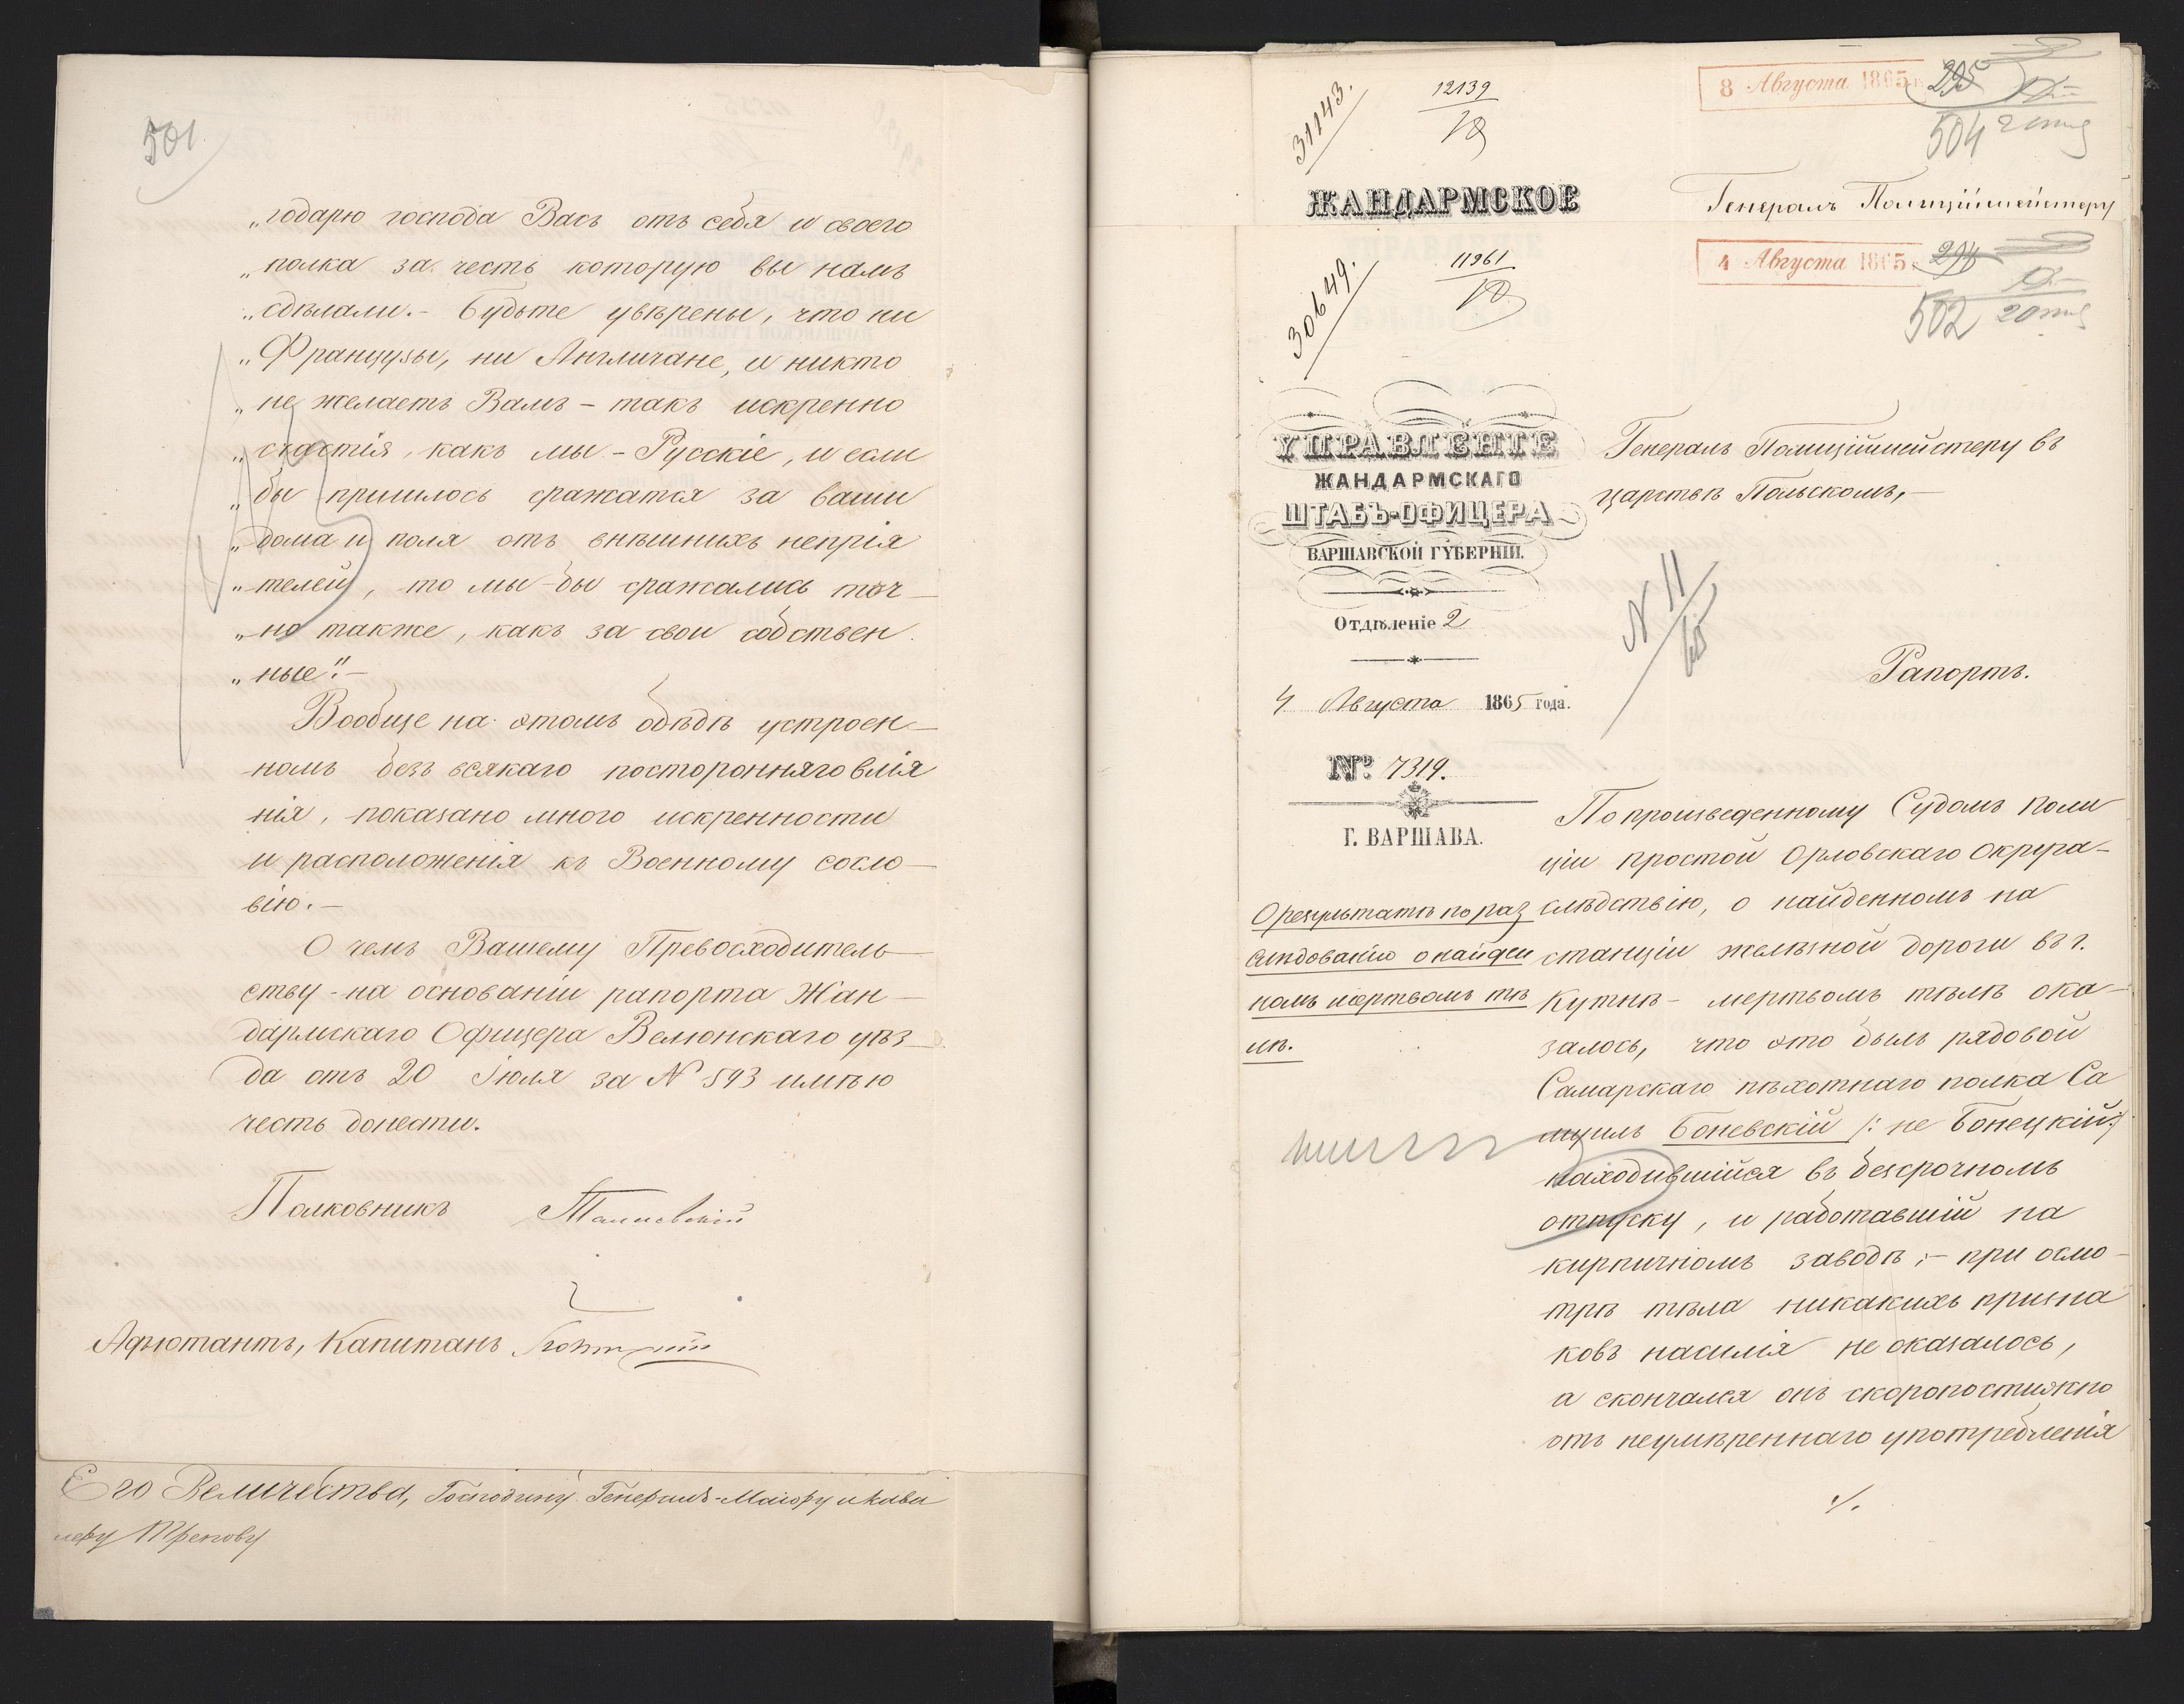 501
„годарю господа Васъ отъ себя и своего
„полка за честь которую вы намъ
„сдѣлали.- Будьте увѣрены, что ни
„Французы, ни Англичане, и никто
„не желаетъ Вамъ - такъ искренно
„счастія, какъ мы - Русскіе, и если
„бы пришлось сражатся за ваши
„дома и поля отъ внѣшнихъ непрія
„телей, то мы-бы сражались точ-
„но также, какъ за свои собствен
„ные".-
Вообще на этомъ обѣдѣ устроен-
номъ безъ всякаго посторонняго влія
нія, показано много искренности
и расположенія къ Военному сосло-
вію.-
О чемъ Вашему Превосходитель-
ству - на основаніи рапорта Жан-
дармскаго Офицера Велюнскаго уѣз-
да отъ 20 Іюля за № 593 имѣю
честь донести.
Полковникъ
Адъютантъ, Капитанъ
Его Величества, Господину Генералъ-Маіору и кава
леру Трепову
31143.
12139
8 Августа 1865 г.
295
504
ЖАНДАРМСКОЕ
Генералъ Полиціймейстеру
30649.
11961
4 Августа 1865
294
502
УПРАВЛЕНІЕ
ЖАНДАРМСКАГО
ШТАБЪ-ОФИЦЕРА
ВАРШАВСКОЙ ГУБЕРНІИ.
Отдѣленіе 2
4 Августа 1865 года.
№ 7319.
Г. ВАРШАВА.
Генералъ Полиціймейстеру въ
царствѣ Польскомъ,-
N 11
65
Рапортъ.
О результатѣ по раз
слѣдованію о найден
номъ мертвомъ тѣ
лѣ.
По произведенному Судомъ поли
ціи простой Орловскаго Округа-
слѣдствію, о найденномъ на
станціи желѣзной дороги въ г.
Кутнѣ - мертвомъ тѣлѣ ока-
залось, что это былъ рядовой
Самарскаго пѣхотнаго полка Са
муилъ Боневскій /: не Бонецкій:/
находившійся въ безсрочномъ
отпуску, и работавшій на
кирпичномъ заводѣ;- при осмо-
трѣ тѣла никакихъ призна
ковъ насилія не оказалось,
а скончался онъ скоропостижно
отъ неумѣреннаго употребленія
./.